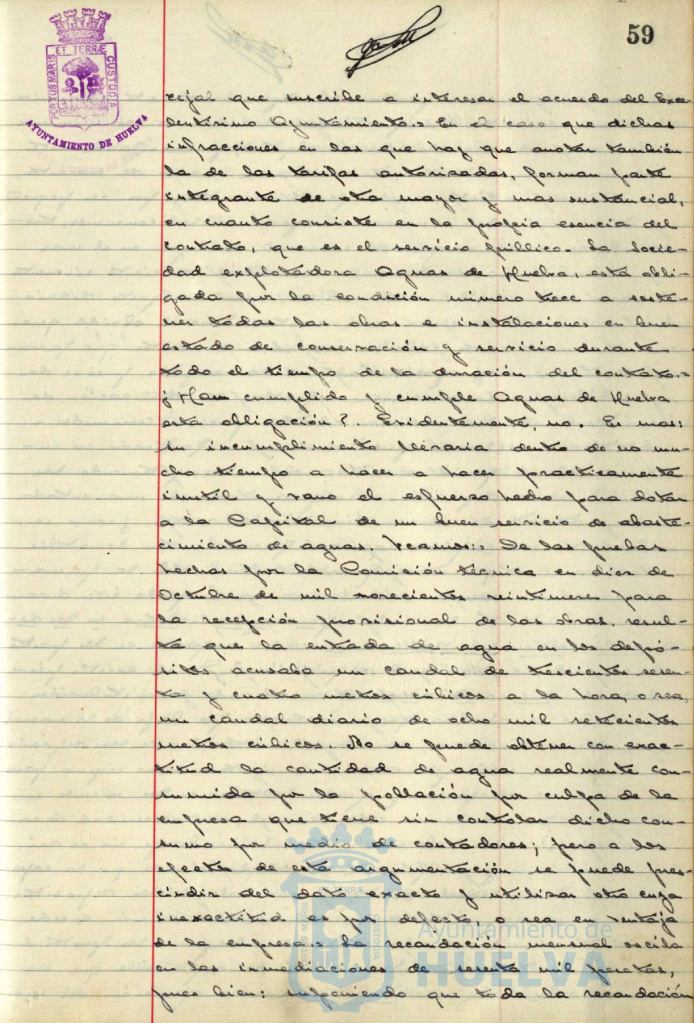 59
POR TUS MARIS ET TERRÆ CUSTODIA
AYUNTAMIENTO DE HUELVA
cejal que suscribe a interesar el acuerdo del Exce
lentisimo Ayuntamiento.= En el caso que dichas
infracciones en las que hay que anotar tambien
la de las tarifas autorizadas, forman parte
integrante de otra mayor y mas sustancial,
en cuanto consiste en la propia esencia del
contrato, que es el servicio público. La Socie-
dad explotadora Aguas de Huelva, está obli-
gada por la condición número trece a soste-
ner todas las obras e instalaciones en buen
estado de conservación y servicio durante
todo el tiempo de la duración del contrato.=
¿Ham cumplido y cumple Aguas de Huelva
esta obligación?. Evidentemente, no. Es mas:
su incumplimiento llevaria dentro de no mu-
cho tiempo a hacer a hacer practicamente
inutil y vano el esfuerzo hecho para dotar
a la Capital de un buen servicio de abaste-
cimiento de aguas. Veamos:= De las pruebas
hechas por la Comisión técnica en diez de
Octubre de mil novecientos veintinueve para
la recepción provisional de las obras, resul-
ta que la entrada de agua en los depó-
sitos acusaba un caudal de trescientos sesen-
ta y cuatro metros cúbicos a la hora, o sea,
un caudal diario de ocho mil setecientos
metros cúbicos. No se puede obtener con exac-
titud la cantidad de agua realmente con-
sumida por la población por culpa de la
empresa que tiene sin controlar dicho con-
sumo por medio de contadores; pero a los
efectos de esta argumentación se puede pres-
cindir del dato exacto y utilizar otro cuya
inexactitud es por defecto, o sea en ventaja
de la empresa.= La recaudación mensual oscila
en las inmediaciones de sesenta mil pesetas,
pues bien: suponiendo que toda la recaudación
Ayuntamiento de
HUELVA